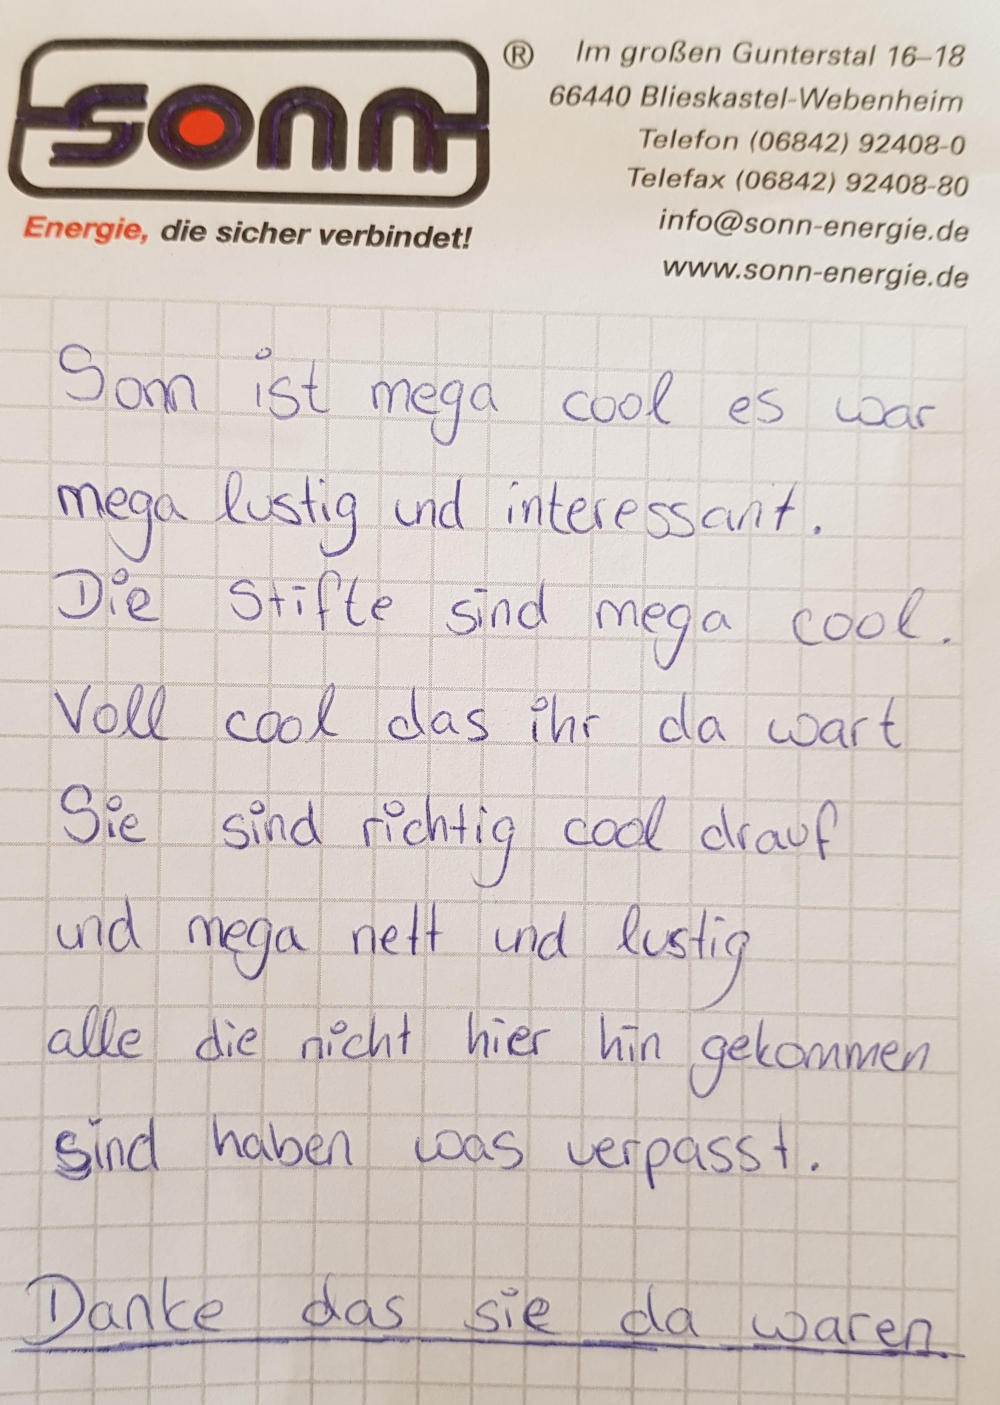 sonn ®
Energie, die sicher verbindet!
Im großen Gunterstal 16–18
66440 Blieskastel-Webenheim
Telefon (06842) 92408-0
Telefax (06842) 92408-80
info@sonn-energie.de
www.sonn-energie.de
Sonn ist mega cool es war
mega lustig und interessant.
Die Stifte sind mega cool.
Voll cool das ihr da wart
Sie sind richtig cool drauf
und mega nett und lustig
alle die nicht hier hin gekommen
sind haben was verpasst.
Danke das sie da waren.